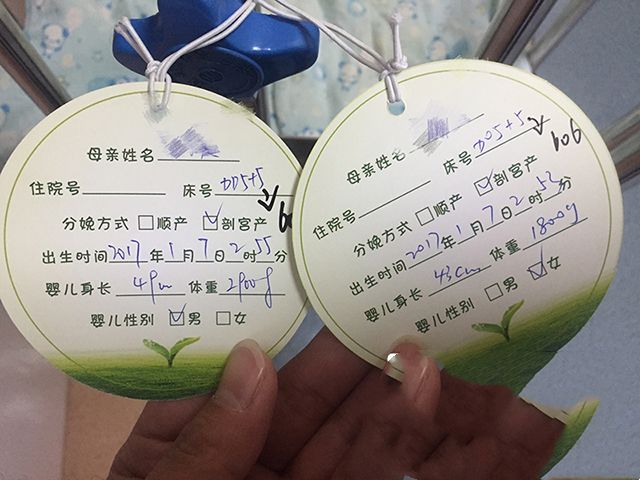 母亲姓名
住院号 床号 DD5+5
分娩方式 □顺产 ☑剖宫产
出生时间 2017 年 1 月 7 日 2 时 55 分
婴儿身长 49cm 体重 2900g
婴儿性别 ☑男 □女
母亲姓名
住院号 床号 DD5+5 606
分娩方式 □顺产 ☑剖宫产
出生时间 2017 年 1 月 7 日 2 时 52 分
婴儿身长 43cm 体重 1800g
婴儿性别 □男 ☑女